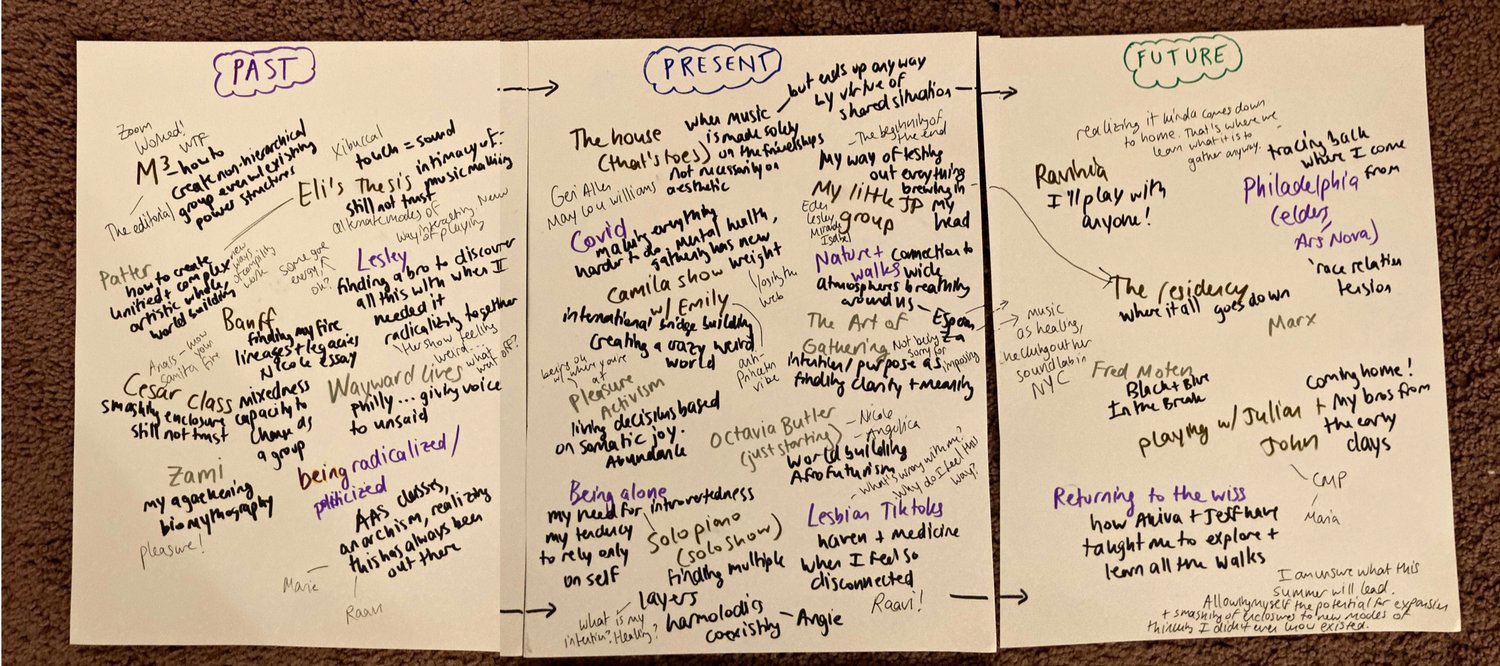 PAST
Zoom
Worked!
WTF
M³ - how to
create non-hierarchical
group even w/ existing
power structures
The editorial
Xibuccal
touch = sound
Eli's Thesis
intimacy of
music making
still not trust
alternate modes of
way interacting New
of playing
Patter
how to create
unified + complex
artistic whole,
world building
new
ways
work
some good
energy,
oh?
Lesley
finding a bro to discover
all this with when I
needed it
radicalizing together
Her show feeling
weird... what
went off?
Banff
finding my fire
lineages + legacies
Nicole essay
Anais - how
your
Samita fire
Cesar class
smashing enclosure
still not trust
mixedness
capacity to
change as
a group
Wayward Lives
philly... giving voice
to unsaid
Zami
my awakening
biomythography
pleasure!
being radicalized/
politicized
AAS classes,
anarchism, realizing
this has always been
out there
Marie
Raavi
PRESENT
The house
(that's toes)
when music
is made solely
on the friendships
not necessarily on
aesthetic
but ends up anyway
by virtue of
shared situation
Geri Allen
Mary Lou Williams
The beginning of
the end
My way of testing
out everything
brewing in
my
head
My little JP
group
Eden
Lesley
Miranda
Isabel
Covid
making everything
harder to do, mental health,
gathering has new
weight
Nature +
walks
connection to
wide
atmospheres breathing
around us
Camila show
w/ Emily
international bridge building
creating a crazy weird
world
Yosily the
web
anti-
Princeton
vibe
Esperanza
The Art of
Gathering
Not being
sorry for
imposing
intention/purpose as
finding clarity + meaning
being ok
w/ where you're
at
Pleasure
Activism
living decisions based
on somatic joy.
Abundance
Octavia Butler
(just starting)
Nicole
Angelica
World building
Afrofuturism
What's wrong with me?
Why do I feel this
way?
Being alone
my need for introvertedness
my tendency
to rely only
on self
Solo piano
(solo show)
finding multiple
layers
harmolodics
coexisting - Angie
what is my
intention? Healing?
Lesbian Tiktoks
haven + medicine
when I feel so
disconnected
Raavi!
FUTURE
realizing it kinda comes down
to home. That's where we
learn what it is to
gather anyway.
Ravinia
I'll play with
anyone!
tracing back
where I come
from
Philadelphia
(elders,
Ars Nova)
race relation
tension
The residency
where it all goes down
music
as healing,
soundlab in
NYC
Marx
Fred Moten
Black + Blue
In the Break
playing w/ Julian +
John
coming home!
my bros from
the early
days
CMP
Maria
Returning to the wiss
how Akiva + Jeff have
taught me to explore +
learn all the walks
I am unsure what this
summer will lead.
Allowing myself the potential for expansion
+ smashing of enclosures to new modes of
thinking I didn't ever know existed.